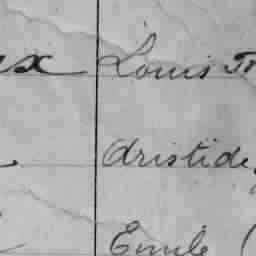 ux Louis
Aristide
Emile (